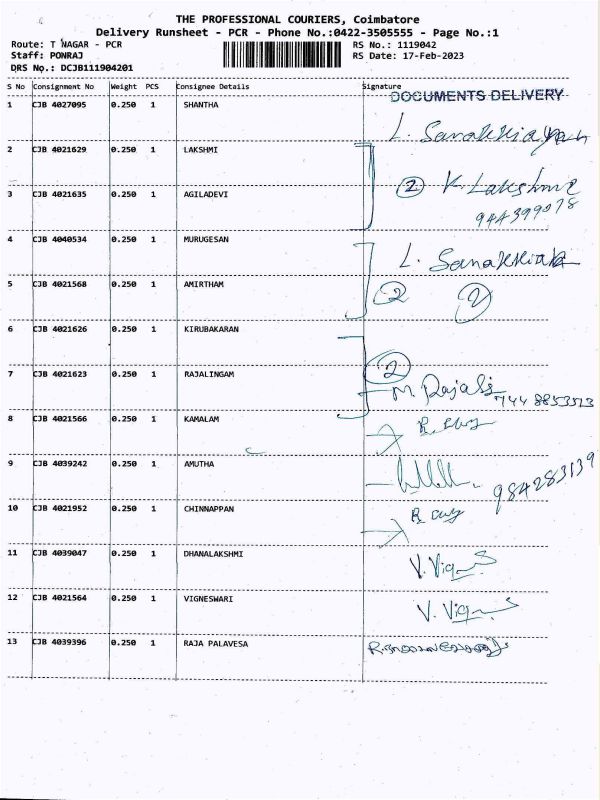 THE PROFESSIONAL COURIERS, Coimbatore
Delivery Runsheet - PCR - Phone No.:0422-3505555 - Page No.:1
Route: T NAGAR - PCR RS No.: 1119042
Staff: PONRAJ RS Date: 17-Feb-2023
DRS No.: DCJB111904201
S No Consignment No Weight PCS Consignee Details Signature
DOCUMENTS DELIVERY
1 CJB 4027095 0.250 1 SHANTHA
2 CJB 4021629 0.250 1 LAKSHMI
2 K. Lakshmi
3 CJB 4021635 0.250 1 AGILADEVI
944399078
4 CJB 4040534 0.250 1 MURUGESAN
5 CJB 4021568 0.250 1 AMIRTHAM 2 2
6 CJB 4021626 0.250 1 KIRUBAKARAN
2
7 CJB 4021623 0.250 1 RAJALINGAM
7448853513
8 CJB 4021566 0.250 1 KAMALAM
9 CJB 4039242 0.250 1 AMUTHA
984283139
10 CJB 4021952 0.250 1 CHINNAPPAN
11 CJB 4039047 0.250 1 DHANALAKSHMI
12 CJB 4021564 0.250 1 VIGNESWARI
13 CJB 4039396 0.250 1 RAJA PALAVESA